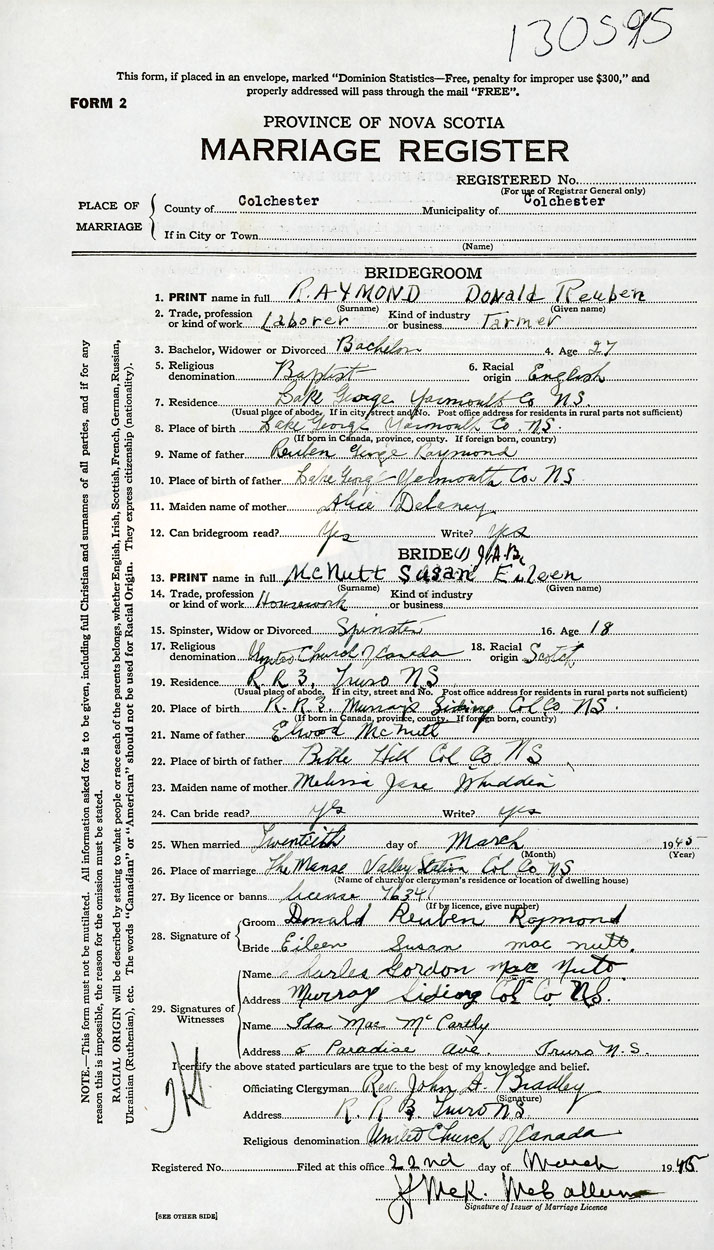 130595
This form, if placed in an envelope, marked "Dominion Statistics—Free, penalty for improper use $300," and
properly addressed will pass through the mail "FREE".
FORM 2
PROVINCE OF NOVA SCOTIA
MARRIAGE REGISTER
REGISTERED No.
(For use of Registrar General only)
PLACE OF MARRIAGE
County of Colchester Municipality of Colchester
If in City or Town
(Name)
BRIDEGROOM
1. PRINT name in full RAYMOND Donald Reuben
(Surname) (Given name)
2. Trade, profession or kind of work Laborer Kind of industry or business Farmer
3. Bachelor, Widower or Divorced Bachelor 4. Age 27
5. Religious denomination Baptist 6. Racial origin English
7. Residence Lake George Yarmouth Co N.S.
(Usual place of abode. If in city, street and No. Post office address for residents in rural parts not sufficient)
8. Place of birth Lake George Yarmouth Co. N.S.
(If born in Canada, province, county. If foreign born, country)
9. Name of father Reuben George Raymond
10. Place of birth of father Lake George Yarmouth Co. NS
11. Maiden name of mother Alice Delaney
12. Can bridegroom read? Yes Write? Yes
BRIDE (1) J.A.B.
13. PRINT name in full McNutt Susan Eileen
(Surname) (Given name)
14. Trade, profession or kind of work Housework Kind of industry or business
15. Spinster, Widow or Divorced Spinster 16. Age 18
17. Religious denomination United Church of Canada 18. Racial origin Scotch
19. Residence R. R. 3, Truro NS
(Usual place of abode. If in city, street and No. Post office address for residents in rural parts not sufficient)
20. Place of birth R. R. 3. Murray's Siding Col. Co. NS.
(If born in Canada, province, county. If foreign born, country)
21. Name of father Elwood McNutt
22. Place of birth of father Bible Hill Col Co. NS
23. Maiden name of mother Melissa Jane Whidden
24. Can bride read? yes Write? yes
25. When married Twentieth day of March 1945
(Month) (Year)
26. Place of marriage The Manse Valley Station Col Co. NS
(Name of church or clergyman's residence or location of dwelling house)
27. By licence or banns license 76341
(If by licence, give number)
28. Signature of
Groom Donald Reuben Raymond
Bride Eileen Susan mac nutt.
29. Signatures of Witnesses
Name Charles Gordon Mac Nutt
Address Murray Siding Col. Co. N.S.
Name Ida Mae McCarthy
Address 5 Paradise Ave. Truro N.S.
I certify the above stated particulars are true to the best of my knowledge and belief.
Officiating Clergyman Rev. John A. Bradley
(Signature)
Address R. R. 3 Truro NS
Religious denomination United Church of Canada
Registered No. Filed at this office 22nd day of March 1945
J McK. McCallum
Signature of Issuer of Marriage Licence
[SEE OTHER SIDE]
NOTE.—This form must not be mutilated. All information asked for is to be given, including full Christian and surnames of all parties, and if for any
reason this is impossible, the reason for the omission must be stated.
RACIAL ORIGIN will be described by stating to what people or race each of the parents belongs, whether English, Irish, Scottish, French, German, Russian,
Ukrainian (Ruthenian), etc. The words "Canadian" or "American" should not be used for Racial Origin. They express citizenship (nationality).